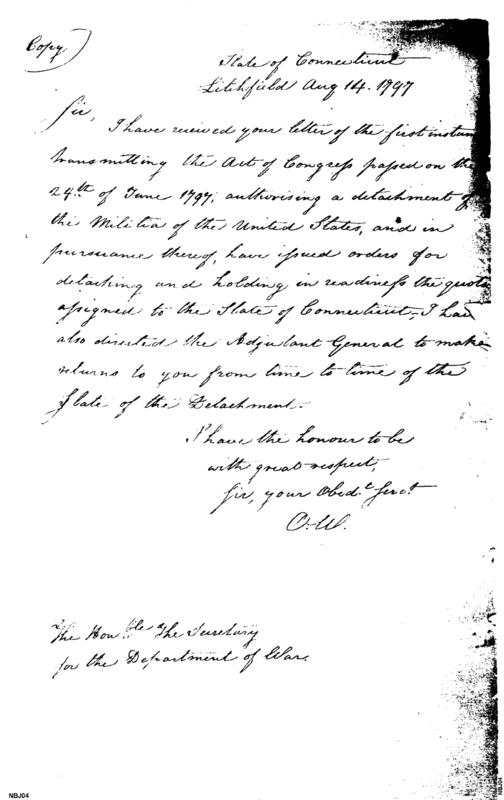 Copy
State of Connecticut
Litchfield Aug 14. 1797
Sir,
I have received your letter of the first instan
transmitting the Act of Congress passed on the
24.th of June 1797, authorising a detachment of
the Militia of the United States, and in
pursuance thereof, have issued orders for
detaching and holding in readiness the quota
assigned to the State of Connecticut, I have
also directed the Adjutant General to make
returns to you from time to time of the
State of the Detachment.
I have the honour to be
with great respect,
Sir, your Obed.t Serv.t
O. W.
The Hon.ble The Secretary
for the Department of War.
NBJ04